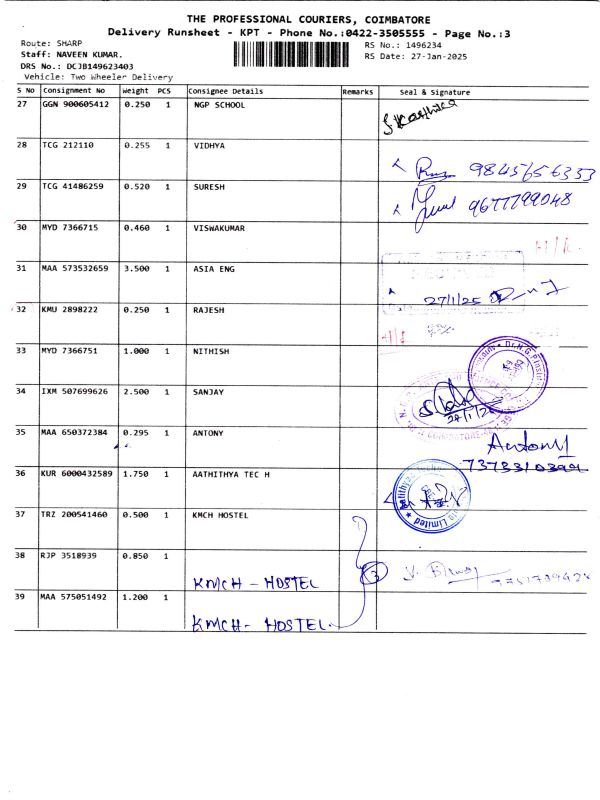 THE PROFESSIONAL COURIERS, COIMBATORE
Delivery Runsheet - KPT - Phone No.:0422-3505555 - Page No.:3
Route: SHARP
RS No.: 1496234
Staff: NAVEEN KUMAR.
RS Date: 27-Jan-2025
DRS No.: DCJB149623403
Vehicle: Two Wheeler Delivery
S No Consignment No Weight PCS Consignee Details Remarks Seal & Signature
27 GGN 900605412 0.250 1 NGP SCHOOL
28 TCG 212110 0.255 1 VIDHYA
9845656353
29 TCG 41486259 0.520 1 SURESH
9677799048
30 MYD 7366715 0.460 1 VISWAKUMAR
31 MAA 573532659 3.500 1 ASIA ENG
27/1/25
32 KMU 2898222 0.250 1 RAJESH
33 MYD 7366751 1.000 1 NITHISH
34 IXM 507699626 2.500 1 SANJAY
35 MAA 650372384 0.295 1 ANTONY
Antony
36 KUR 6000432589 1.750 1 AATHITHYA TEC H
37 TRZ 200541460 0.500 1 KMCH HOSTEL
38 RJP 3518939 0.850 1
KMCH - HOSTEL
3
39 MAA 575051492 1.200 1
KMCH - HOSTEL